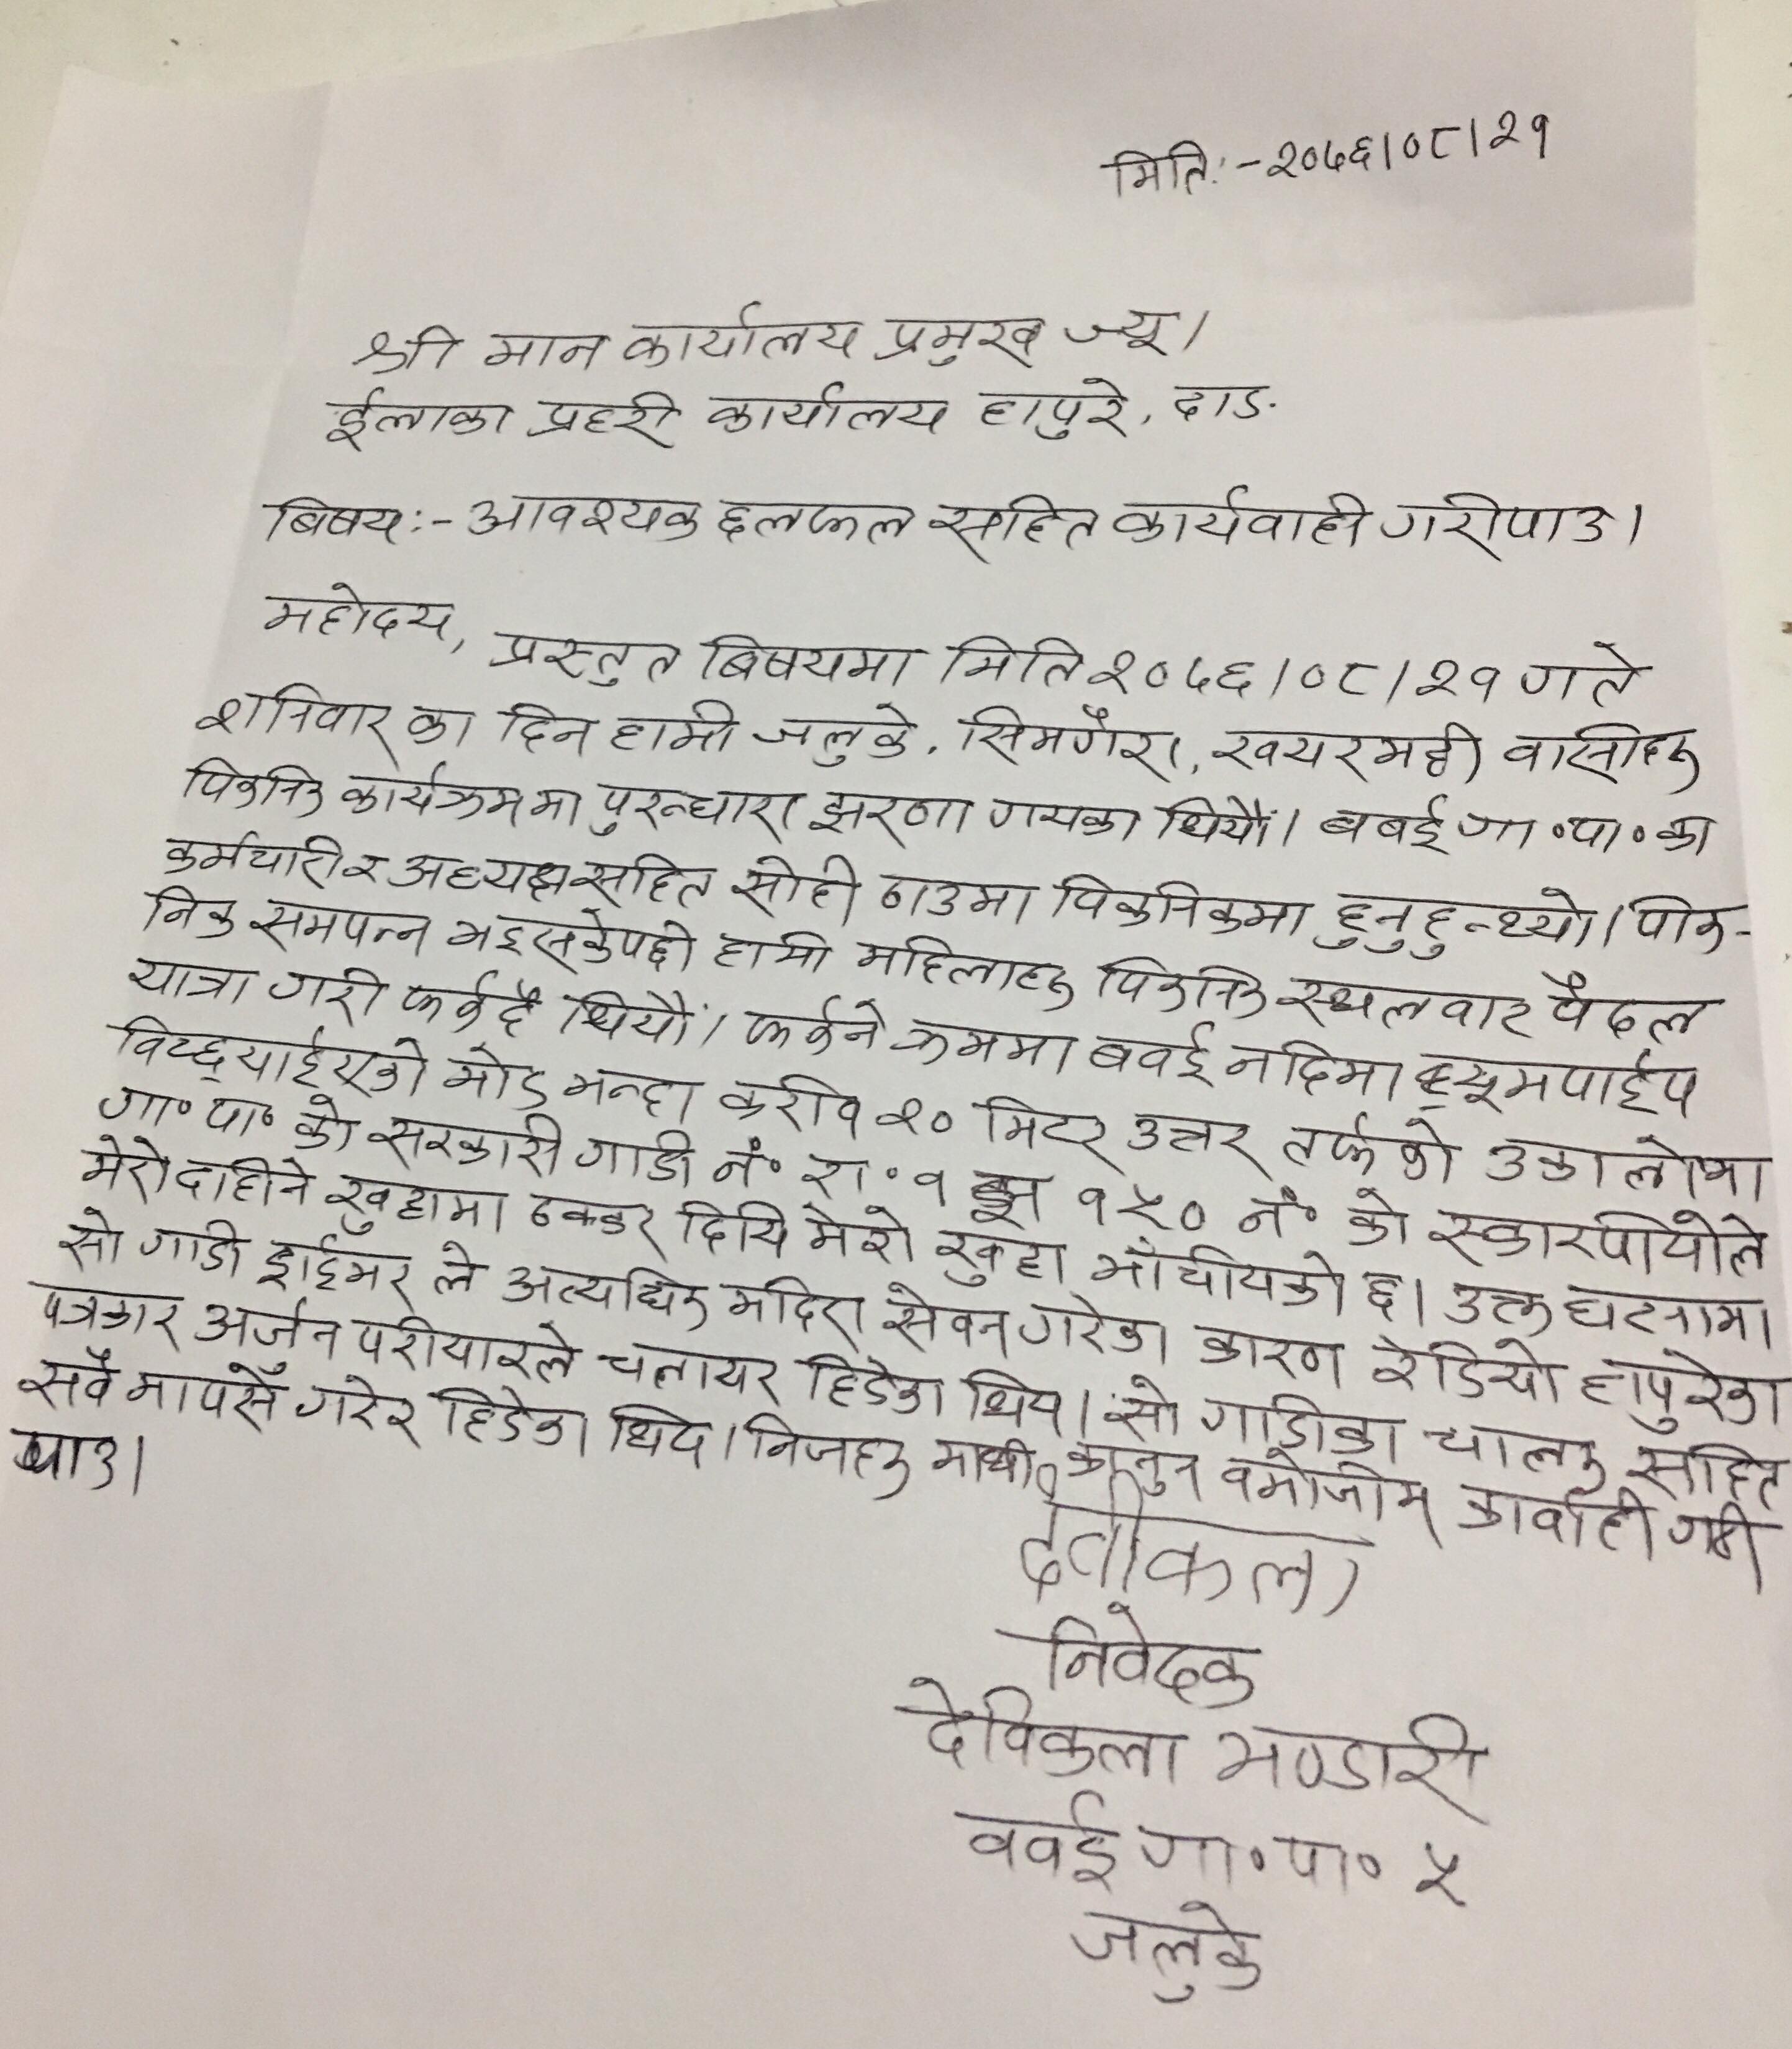 मिति:-२०७६।०८।२१
श्री मान कार्यालय प्रमुख ज्यू।
ईलाका प्रहरी कार्यालय हापुरे, दाङ.
बिषय:- आवश्यक छलफल सहित कार्यवाही गरीपाउ।
महोदय,
प्रस्तुत बिषयमा मिति २०७६।०८।२१ गते
शनिवार का दिन हामी जलुके, सिमगैरा, खयरभट्टी वासीहरु
पिकनिक कार्यक्रममा पुरन्धारा झरणा गयका थियौं। बबई गा॰पा॰का
कर्मचारी र अध्यक्ष सहित सोही ठाउमा पिकनिकमा हुनुहुन्थ्यो। पीक-
निक समपन्न भइसकेपछी हामी महिलाहरु पिकनिक स्थलवाट पैदल
यात्रा गरी फर्कदै थियौं। फर्कने क्रममा बबई नदिमा ह्यूमपाईप
विच्छ्याईएको मोड भन्दा करीव २० मिटर उत्तर तर्फको उकालोमा
गा॰पा॰ को सरकारी गाडी नं॰ रा॰१ झ १५० नं॰ को स्कारपीयोले
मेरो दाहीने खुट्टामा ठक्कर दियि मेरो खुट्टा भाँचीयको छ। उक्त घटनामा
सो गाडी ड्राईभर ले अत्यधिक मदिरा सेवन गरेका कारण रेडियो हापुरेका
पत्रकार अर्जुन परीयारले चलायर हिडेका थिय। सो गाडीका चालक सहित
सवै मापसे गरेर हिडेका थिय। निजहरु माथी कानुन वमोजीम् कार्वाही गरी
पाउ।
देवीकला
निवेदक
देविकला भण्डारी
ववई गा॰पा॰ ५
जलुके